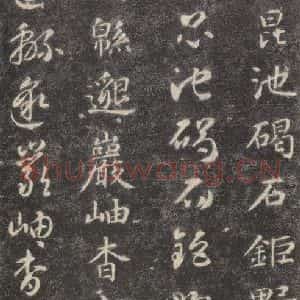 昆池碣石鉅野
昆池碣石鉅
緜邈巖岫杳
緜邈巖岫杳
Shufawang.CN